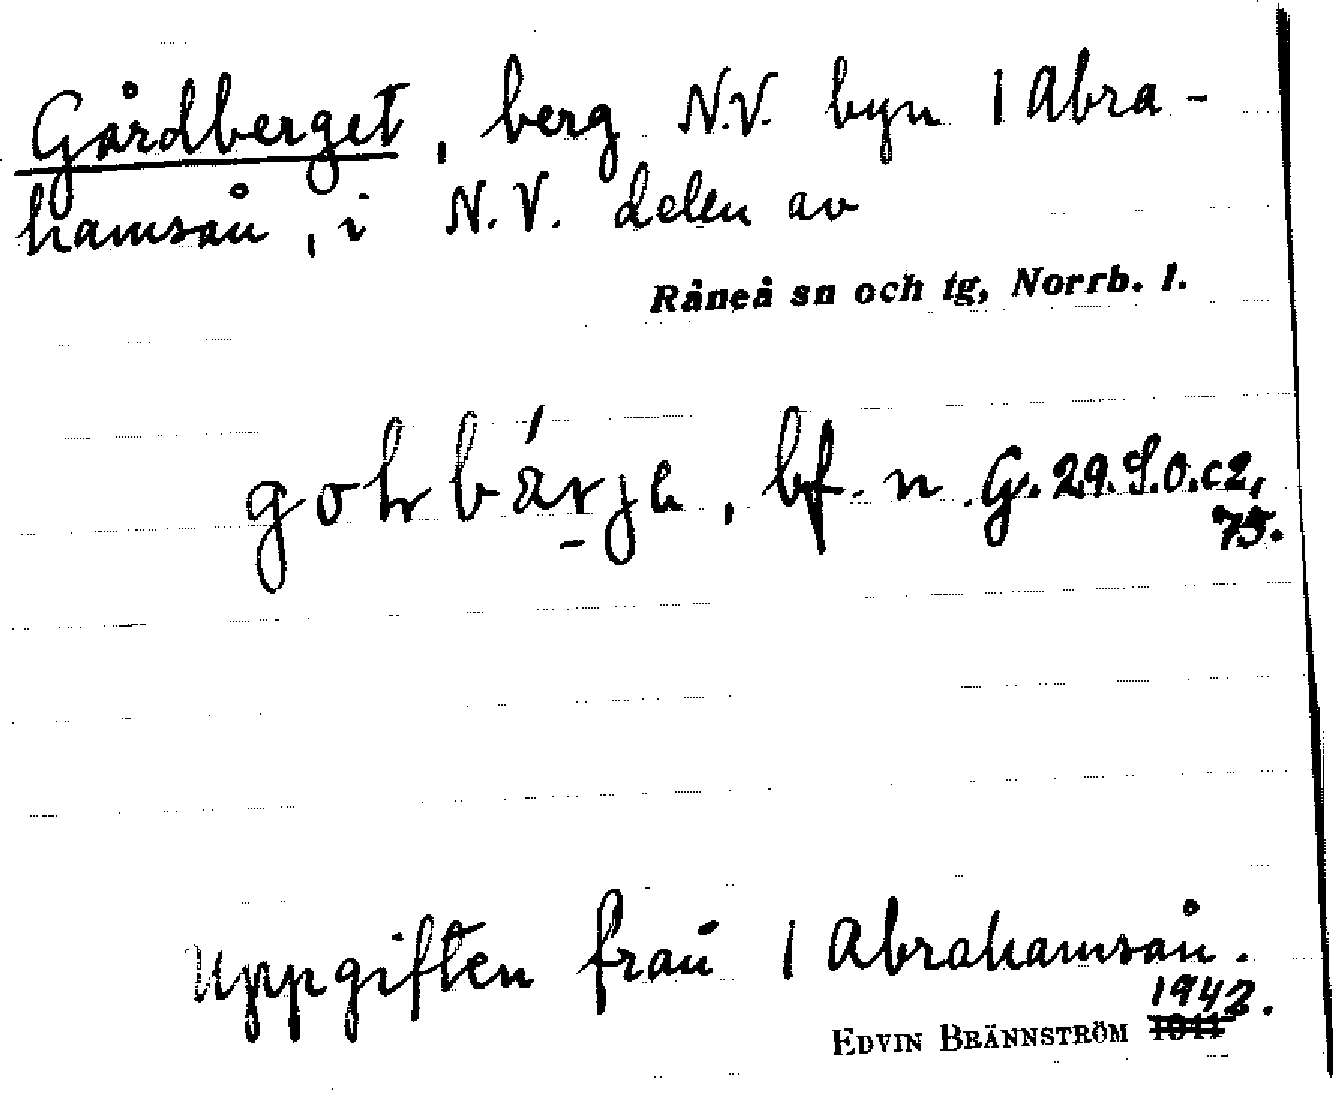 Gårdberget, berg N.V. byn 1 Abra-
hamsån, i N.V. delen av
Råneå sn och tg, Norrb. l.
bf. n G. 29. S.O. c2,
75.
Uppgiften från 1 Abrahamsån.
1942.
EDVIN BRÄNNSTRÖM 1941